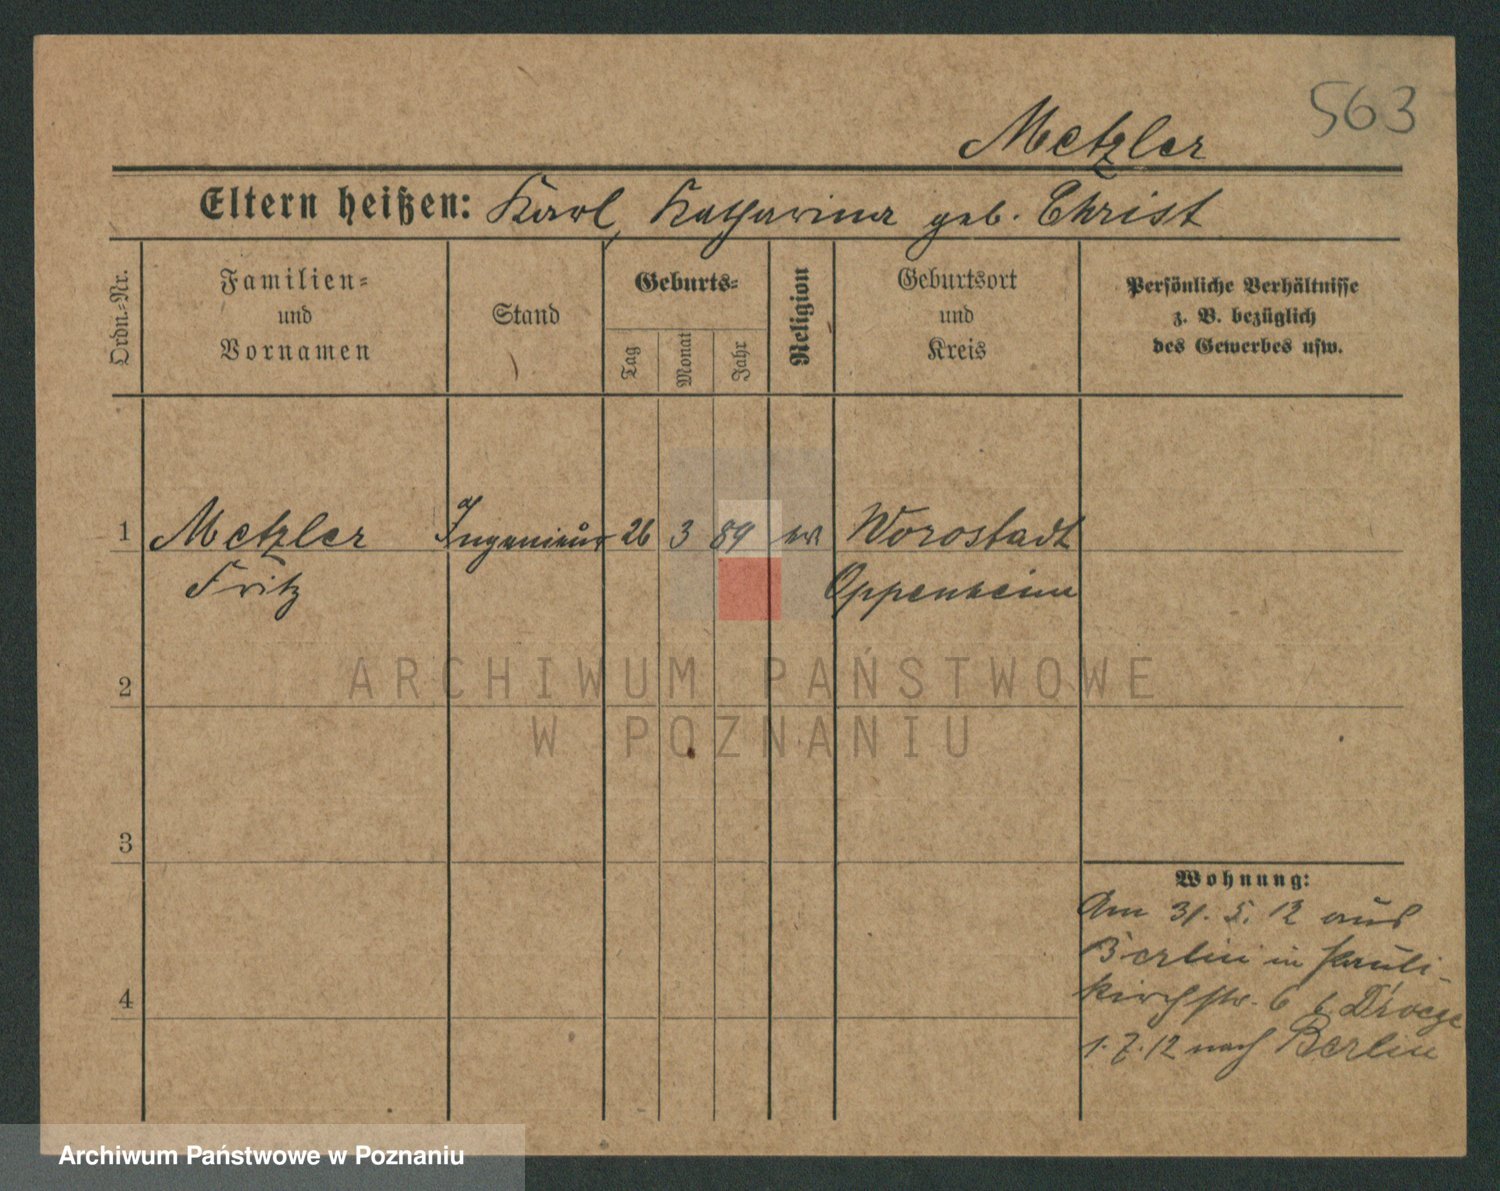 563
Metzler
Eltern heißen: Karl, Katharina geb. Christ
Ordn.-Nr.
Familien-
und
Vornamen
Stand
Geburts-
Tag
Monat
Jahr
Religion
Geburtsort
und
Kreis
Persönliche Verhältnisse
z. B. bezüglich
des Gewerbes usw.
1 Metzler Ingenieur 26 3 89 ev Wörrstadt
Fritz Oppenheim
ARCHIWUM PAŃSTWOWE
W POZNANIU
2
3
4
Wohnung:
Am 31. 5. 12 aus
Berlin in Pauli-
kirchstr. 6 b. Droege
1. 7. 12 nach Berlin
Archiwum Państwowe w Poznaniu